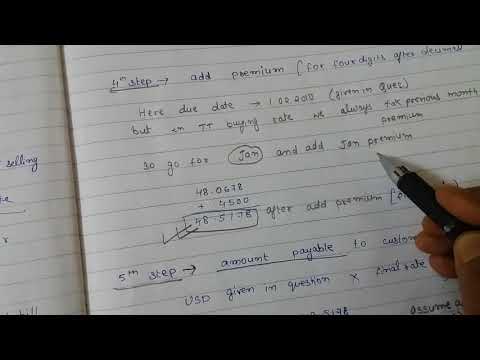 4th step → add premium [for four digits after decimal
Here due date → 1.02.2013 (given in Ques)
but in TT buying rate we always take previous month
premium
so go for Jan and add Jan premium
48.0678
+ 4500
48.5178 after add premium
5th step → amount payable to custom
USD given in question × final rate
5178
assume
selling
bill